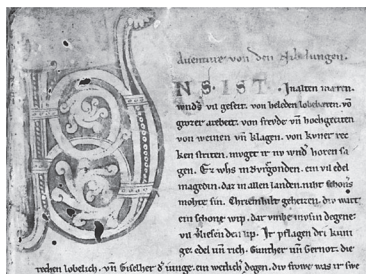 Auenture von den Nibelungen.
UNS IST. In alten mæren.
wnders vil geseit. von heleden lobebæren. võ
grozer arebeit. von freude vñ hochgeciten
von weinen vñ klagen. von kuner rec
ken striten. muget ir nv wnder horen sa
gen. Ez whs in Bvrgonden. ein vil edel
magedin. daz in allen landen. niht schoners
mohte sin. Chriemhilt geheizen. div wart
ein schone wip. dar vmbe mvsin degene
vil verliesen den lip. Ir pflagen dri kuni
ge. edel vñ rich. Gunther vñ Gernot. die
rechen lobelich. vñ Giselher d iunge. ein werlich degen. div frowe was ir swe